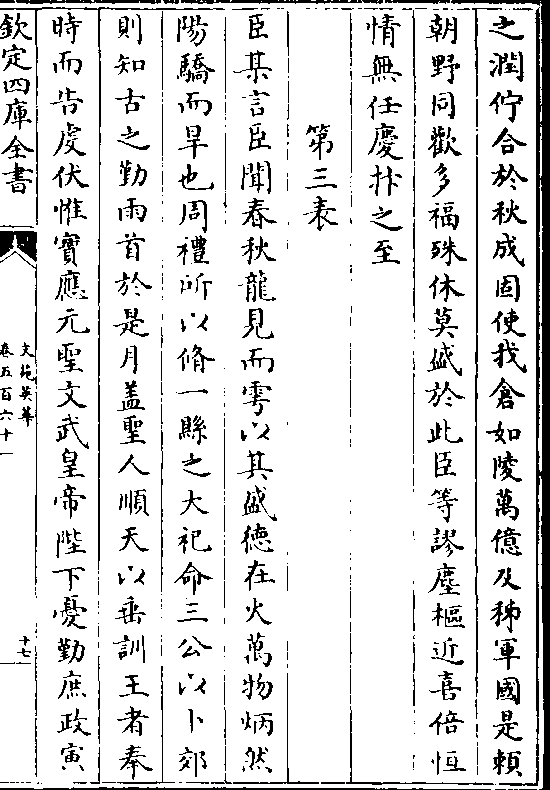 之潤佇合於秋成固使我倉如陵萬億及秭軍國是賴
朝野同歡多福殊休莫盛於此臣等謬塵樞近喜倍恒
情無任慶抃之至
第三表
臣某言臣聞春秋龍見而雩以其盛德在火萬物炳然
陽驕而旱也周禮所以脩一縣之大祀命三公以卜郊
則知古之勤雨首於是月盖聖人順天以垂訓王者奉
時而告䖍伏惟寳應元聖文武皇帝陛下憂勤庶政寅
欽定四庫全書
文苑英華
卷五百六十一
十七